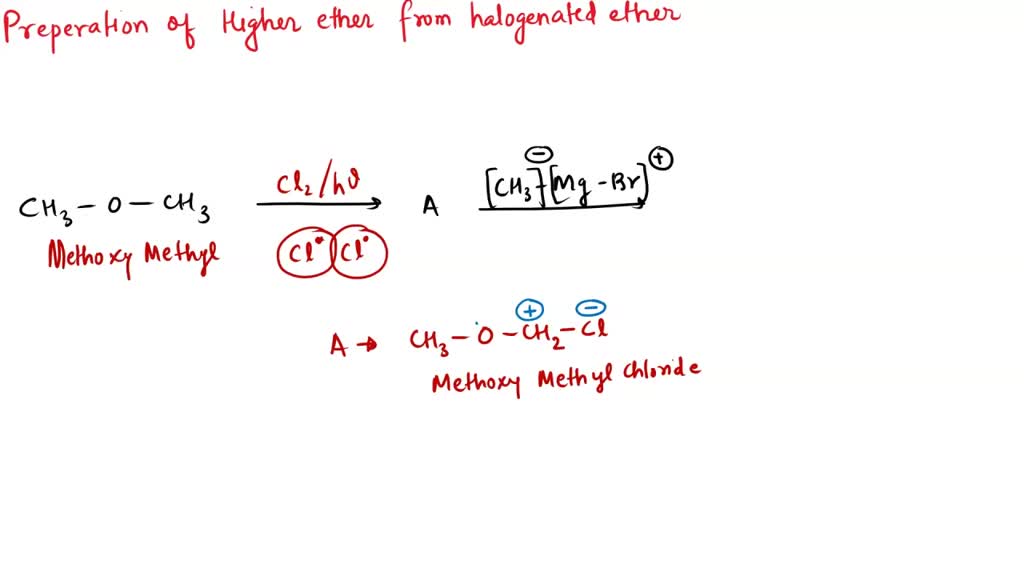 Preperation of Higher ether from halogenated ether
CH3 - O - CH3 Cl2/hν A [CH3]⊖-[Mg-Br]⊕
Methoxy Methyl Cl• Cl•
A → CH3 - O - CH2 - Cl ⊕ ⊖
Methoxy Methyl Chloride